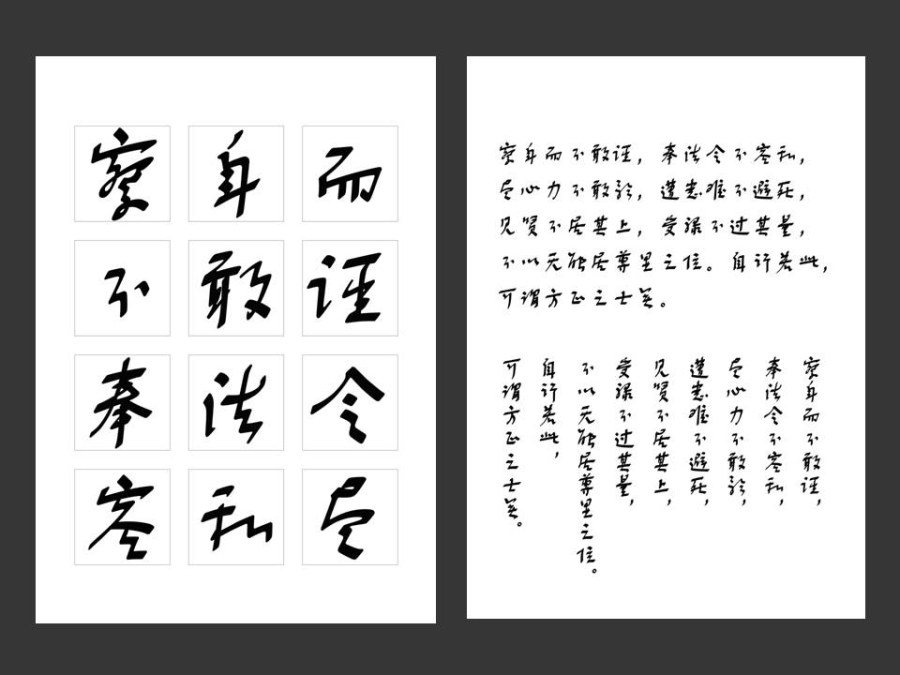 察身而
不敢诬
奉法令
容私尽
察身而不敢诬，奉法令不容私，
尽心力不敢矜，遭患难不避死，
见贤不居其上，受禄不过其量，
不以无能居尊显之位。自行若此，
可谓方正之士矣。
察身而不敢诬，
奉法令不容私，
尽心力不敢矜，
遭患难不避死，
见贤不居其上，
受禄不过其量，
不以无能居尊显之位。
自行若此，
可谓方正之士矣。